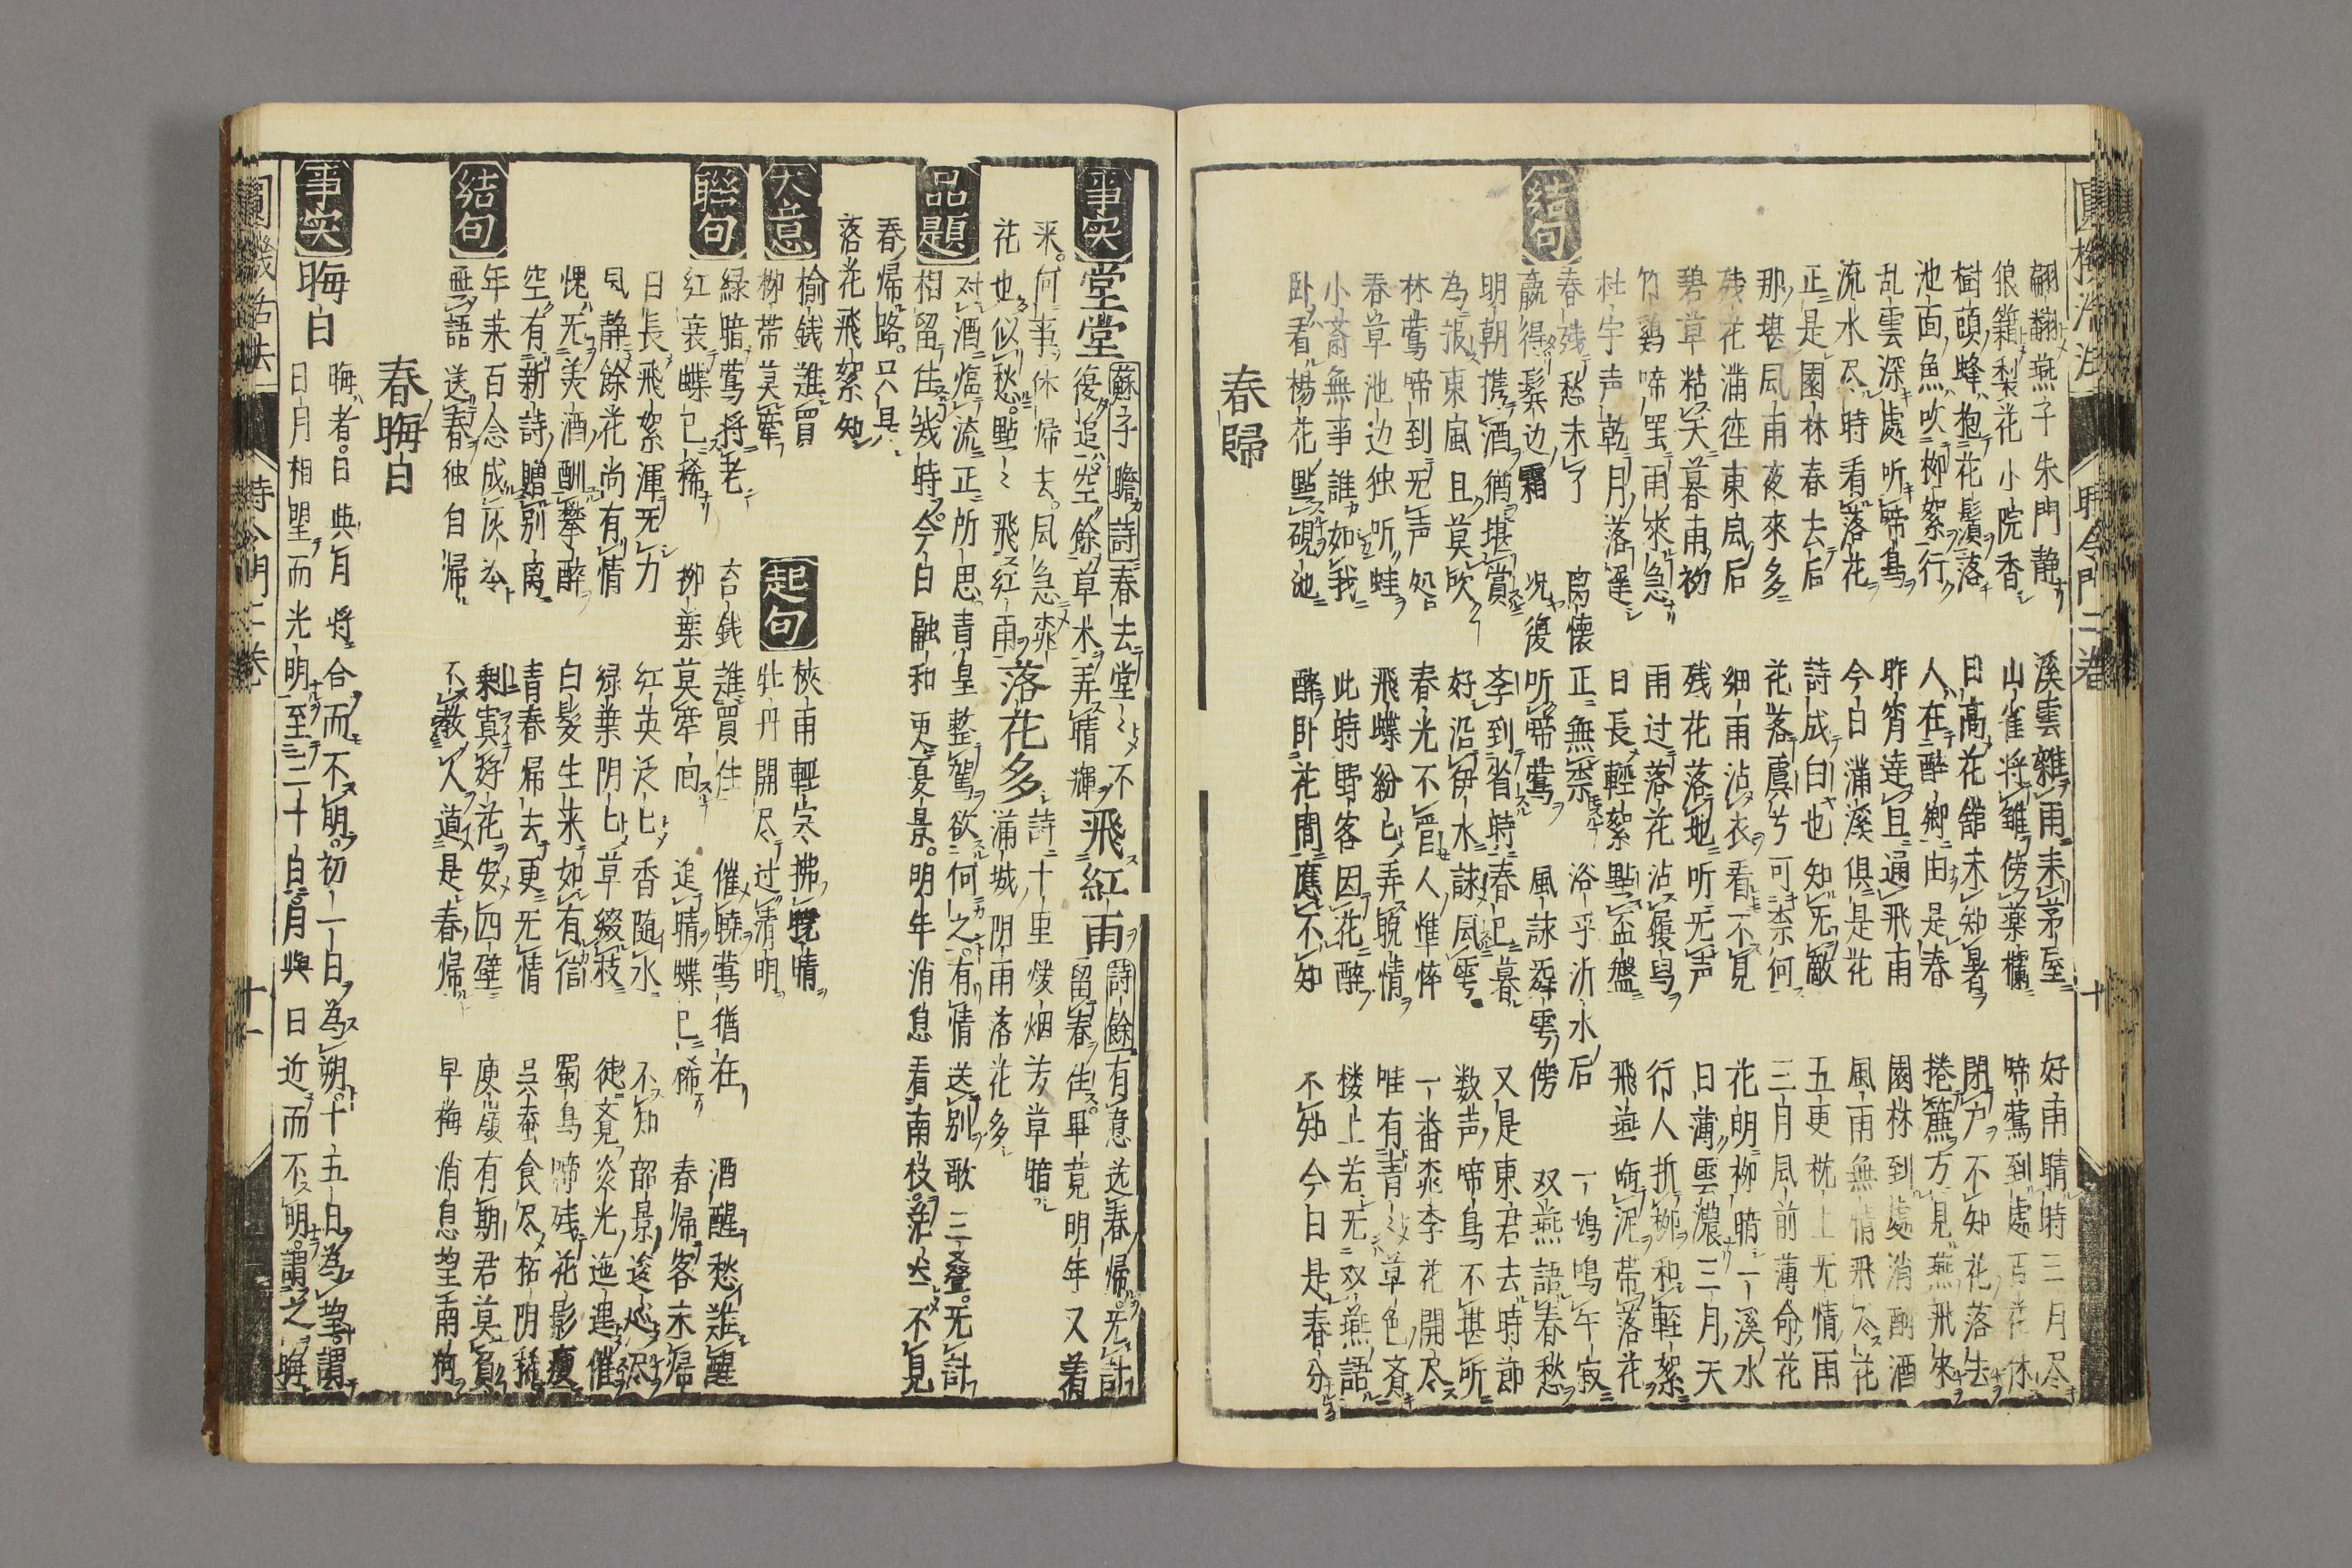 翩翩燕子朱門静 溪雲雜雨来茅屋 好雨晴時三月尽
狼籍梨花小院香 山雀将雛傍藥欄 啼鶯到處百花休
樹頭蜂抱花鬚落 日高花舘未知暑 閉户不知花落去
池面魚吹柳絮行 人在醉郷由是春 捲簾方見燕飛來
乱雲深處听啼鳥 昨宵達旦通飛雨 園林到處消酌酒
流水尽時看落花 今日滿溪俱是花 風雨無情飛尽花
正是園林春去后 詩成白也知无敵 五更枕上无情雨
那堪風雨夜來多 花落虞兮可柰何 三月風前薄命花
残花滿徑東風后 細雨沾衣看不見 花明柳暗一溪水
碧草粘天暮雨初 残花落地听无声 日薄雲濃三月天
竹鷄啼罢雨來急 雨过落花沾履舄 行人折柳和輕絮
杜宇声乾月落遲 日長輕絮點盃盤 飛燕啣泥帯落花
結句
春残愁未了 离懐正無柰 浴乎沂水后 一鳩鳴午寂
贏得鬂边霜 况復听啼鶯 風詠舞雩傍 双燕語春愁
明朝携酒猶堪賞 李到省時春已暮 又是東君去時節
為報東風且莫吹 好沿伊水詠風雩 数声啼鳥不堪所
林鶯啼到无声処 春光不管人憔悴 一番桃李花開尽
春草池边独听蛙 飛蝶紛匕弄晩情 唯有青〻草色齐
小斎無事誰如我 此時野客因花醉 楼上若无双燕語
卧看楊花點硯池 醉卧花間應不知 不知今日是春分
春歸
事実 堂堂 蘇子瞻詩 春去堂〻不
復追空餘草木弄晴輝 飛紅雨 詩餘 有意送春帰无計
留春住畢竟明年又着
来何事休帰去風急桃 落花多 詩十里煖烟芳草暗
花也似愁點〻飛紅雨 滿城阴雨落花多
品題
对酒 流正所思青皇整駕欲何之有情送别歌三叠无計
相留住幾時今日融和更夏景明年消息看南枝茫然不見
春帰路只是
落花飛絮知
大意 榆錢誰買
柳帯莫牽
起句 梜雨輕寒拂晩晴
牡丹開尽过清明
聮句 緑暗鶯将老 苔錢誰買住 催曉鶯猶在 酒醒愁誰醒
红衰蝶已稀 柳葉莫牽回 追晴蝶已稀 春帰客未帰
日長飛絮渾无力 红英泛匕香隨水 不知韶景逡巡尽
風静餘花尚有情 緑葉阴匕草綴枝 徒覚炎光迤逦催
愧无美酒酬攀醉 白髪生来如有信 蜀鳥啼残花影瘦
空有新詩贈别离 青春帰去更无情 吴蚕食尽柘阴稀
年来百念成灰冷 剰寘好花安四壁 庾嶺有期君莫負
無語送春独自帰 不教人道是春帰 早梅消息望南向
結句
春晦日
事実 晦日 晦者日與月将合而不明初一日為朔十五日為望謂
日月相望而光明至三十日月與日近而不明謂之晦
圓機活法 時令門二卷 十
圓機活法 時令門二卷 十一